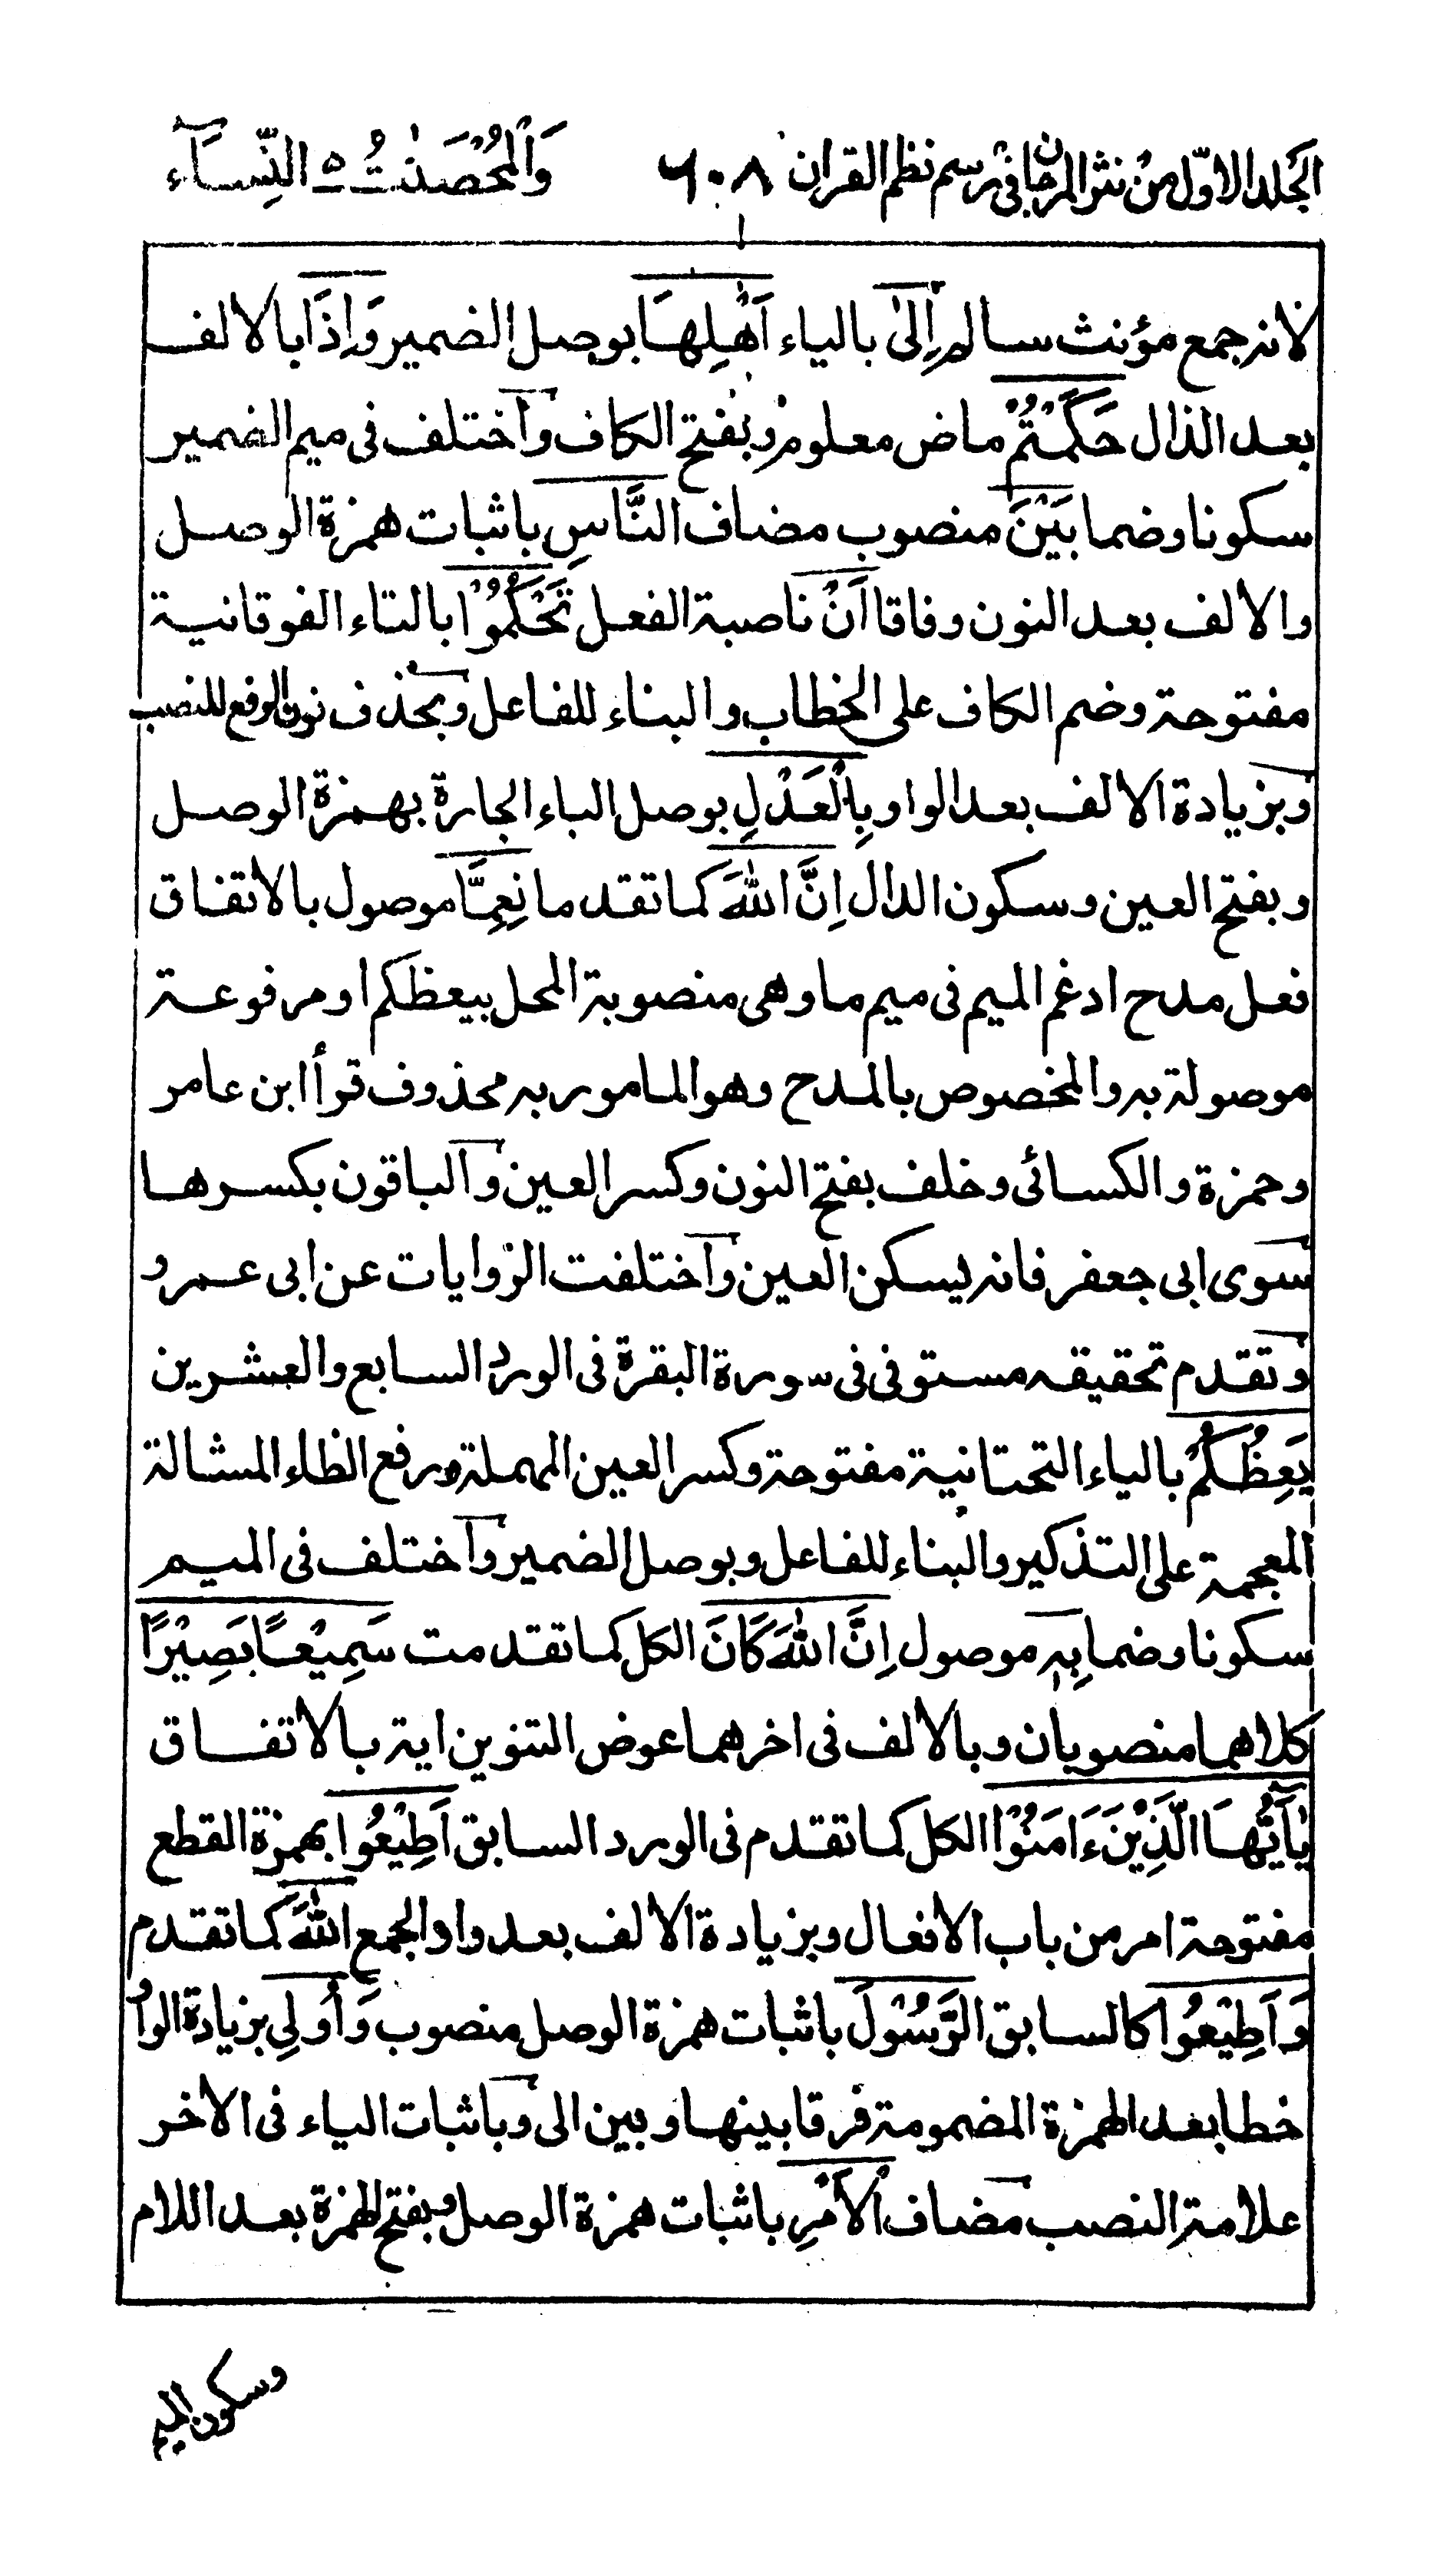 الجلد الاوّل من نثر المرجان في رسم نظم القران ٦٠٨ وَالْمُحْصَنٰتُ ٥ النِّسَآء
لانه جمع مؤنث سالم اِلٰى بالياء اَهْلِهَا بوصل الضمير وَاِذَا بالالف
بعد الذال حَكَمْتُمْ ماض معلوم وبفتح الكاف واختلف فى ميم الضمير
سكونا وضما بَيْنَ منصوب مضاف النَّاسِ باثبات همزة الوصل
والالف بعد النون وفاقا اَنْ ناصبة الفعل تَحْكُمُوْا بالتاء الفوقانية
مفتوحة وضم الكاف على الخطاب والبناء للفاعل وبحذف نون الرفع للنصب
وبزيادة الالف بعد الواو بِالْعَدْلِ بوصل الباء الجارة بهمزة الوصل
وبفتح العين وسكون الدال اِنَّ اللّٰهَ كما تقدما نِعِمَّا موصول بالاتفاق
فعل مدح ادغم الميم فى ميم ما وهى منصوبة المحل بيعظكم او مرفوعة
موصولة به والمخصوص بالمدح وهو المامور به محذوف قرأ ابن عامر
وحمزة والكسائى وخلف بفتح النون وكسر العين والباقون بكسرها
سوى ابى جعفر فانه يسكن العين واختلفت الروايات عن ابى عمرو
وتقدم تحقيقه مستوفى فى سورة البقرة فى الورد السابع والعشرين
يَعِظُكُمْ بالياء التحتانية مفتوحة وكسر العين المهملة ورفع الظاء المشالة
المعجمة على التذكير والبناء للفاعل وبوصل الضمير واختلف فى الميم
سكونا وضما بِهٖ موصول اِنَّ اللّٰهَ كَانَ الكل كما تقدمت سَمِيْعًا بَصِيْرًا
كلاهما منصوبان وبالالف فى اخرهما عوض التنوين اية بالاتفاق
يٰٓاَيُّهَا الَّذِيْنَ ءَامَنُوْا الكل كما تقدم فى الورد السابق اَطِيْعُوا بهمزة القطع
مفتوحة امر من باب الافعال وبزيادة الالف بعد واو الجمع اللّٰهَ كما تقدم
وَاَطِيْعُوا كالسابق الرَّسُوْلَ باثبات همزة الوصل منصوب وَاُولِي بزيادة الواو
خطا بعد الهمزة المضمومة فرقا بينها وبين الى وباثبات الياء فى الاخر
علامة النصب مضاف الْاَمْرِ باثبات همزة الوصل وبفتح الهمزة بعد اللام
وسكون الميم